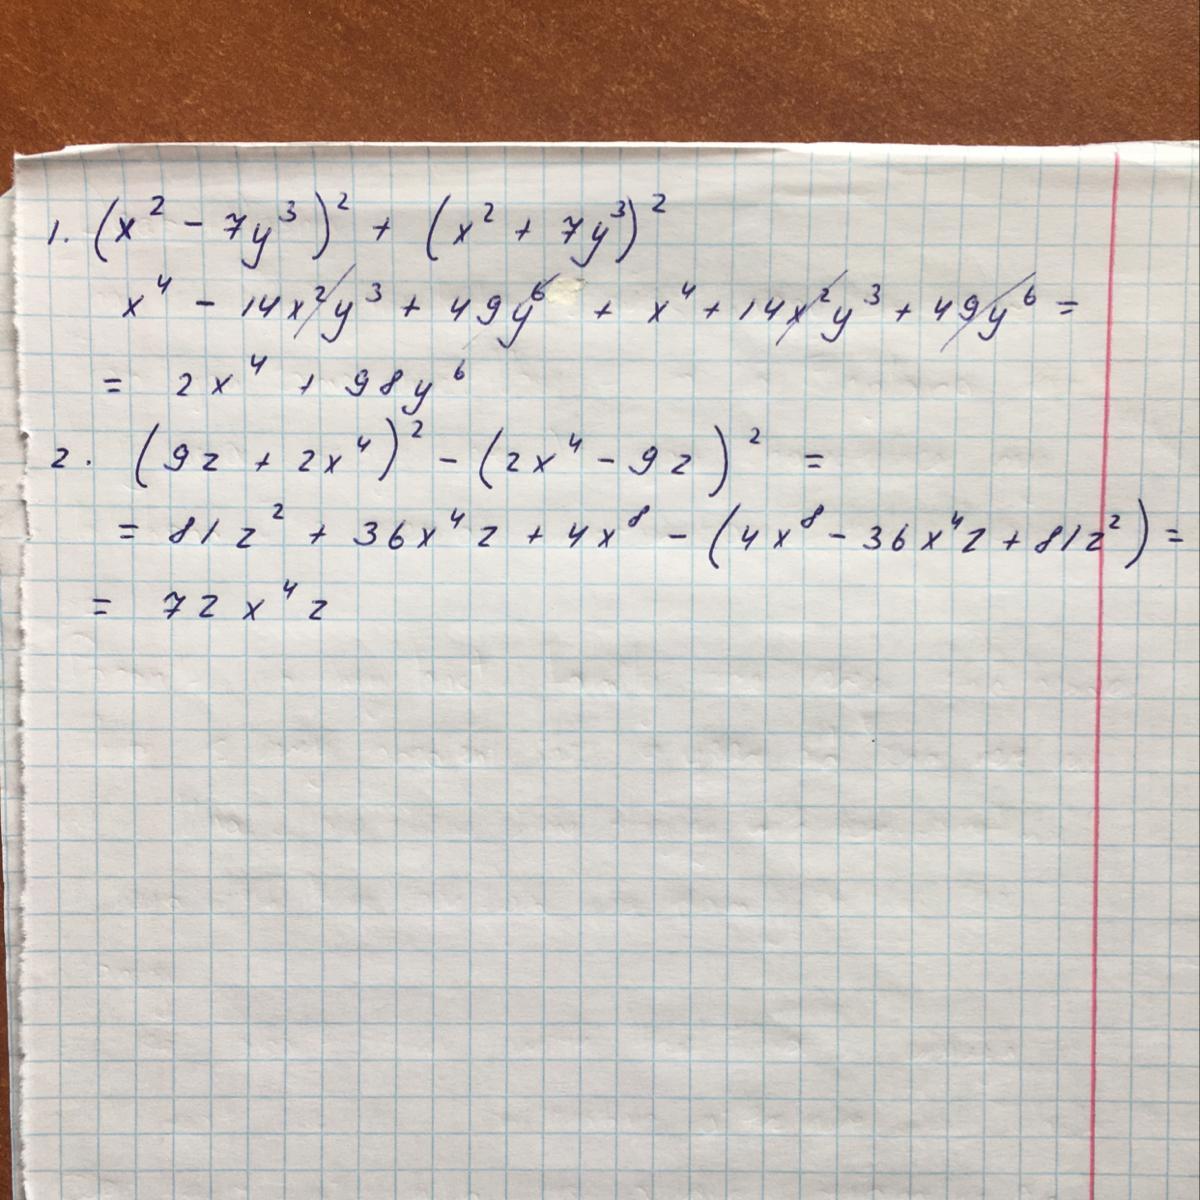 1. (x² - 7y³)² + (x² + 7y³)²
x⁴ - 14x²y³ + 49y⁶ + x⁴ + 14x²y³ + 49y⁶ =
= 2x⁴ + 98y⁶
2. (9z + 2x⁴)² - (2x⁴ - 9z)² =
= 81z² + 36x⁴z + 4x⁸ - (4x⁸ - 36x⁴z + 81z²) =
= 72x⁴z